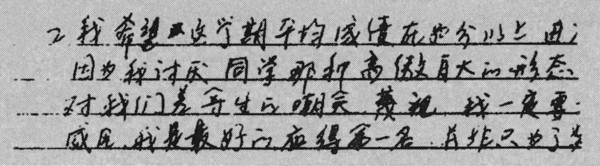 2 我希望这学期平均成绩在 分以上 由
因为我讨厌同学那种高傲自大的形态
对我们差等生的嘲笑 蔑视 我一定要
我是最好的应得第一名 并非只为了